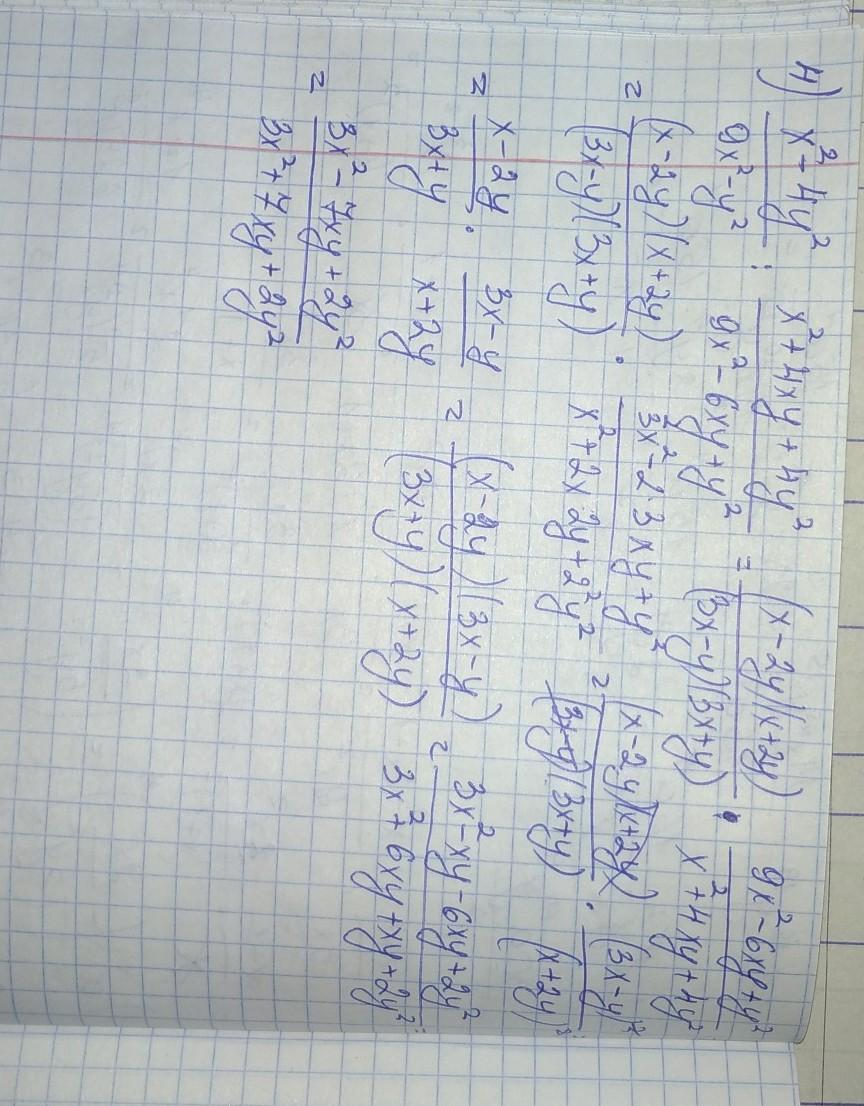 4) (x²+4y²)/(9x²-y²) : (x²+4xy+4y²)/(9x²-6xy+y²) = ((x-2y)(x+2y))/((3x-y)(3x+y)) · (9x²-6xy+y²)/(x²+4xy+4y²)
= ((x-2y)(x+2y))/((3x-y)(3x+y)) · (3²x²-2·3xy+y²)/(x²+2x·2y+2²y²) = ((x-2y)(x+2y))/((3x-y)(3x+y)) · (3x-y)²/(x+2y)²
= (x-2y)/(3x+y) · (3x-y)/(x+2y) = ((x-2y)(3x-y))/((3x+y)(x+2y)) = (3x²-xy-6xy+2y²)/(3x²+6xy+xy+2y²)
= (3x²-7xy+2y²)/(3x²+7xy+2y²)